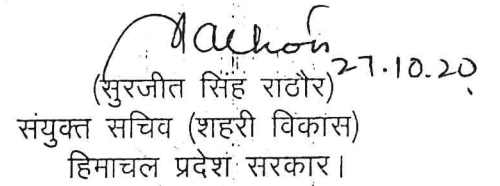 Rathore
27.10.20
(सुरजीत सिंह राठौर)
संयुक्त सचिव (शहरी विकास)
हिमाचल प्रदेश सरकार।